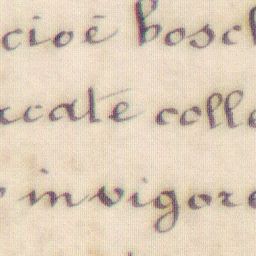 cioè bosch
rcate colle
in vigore